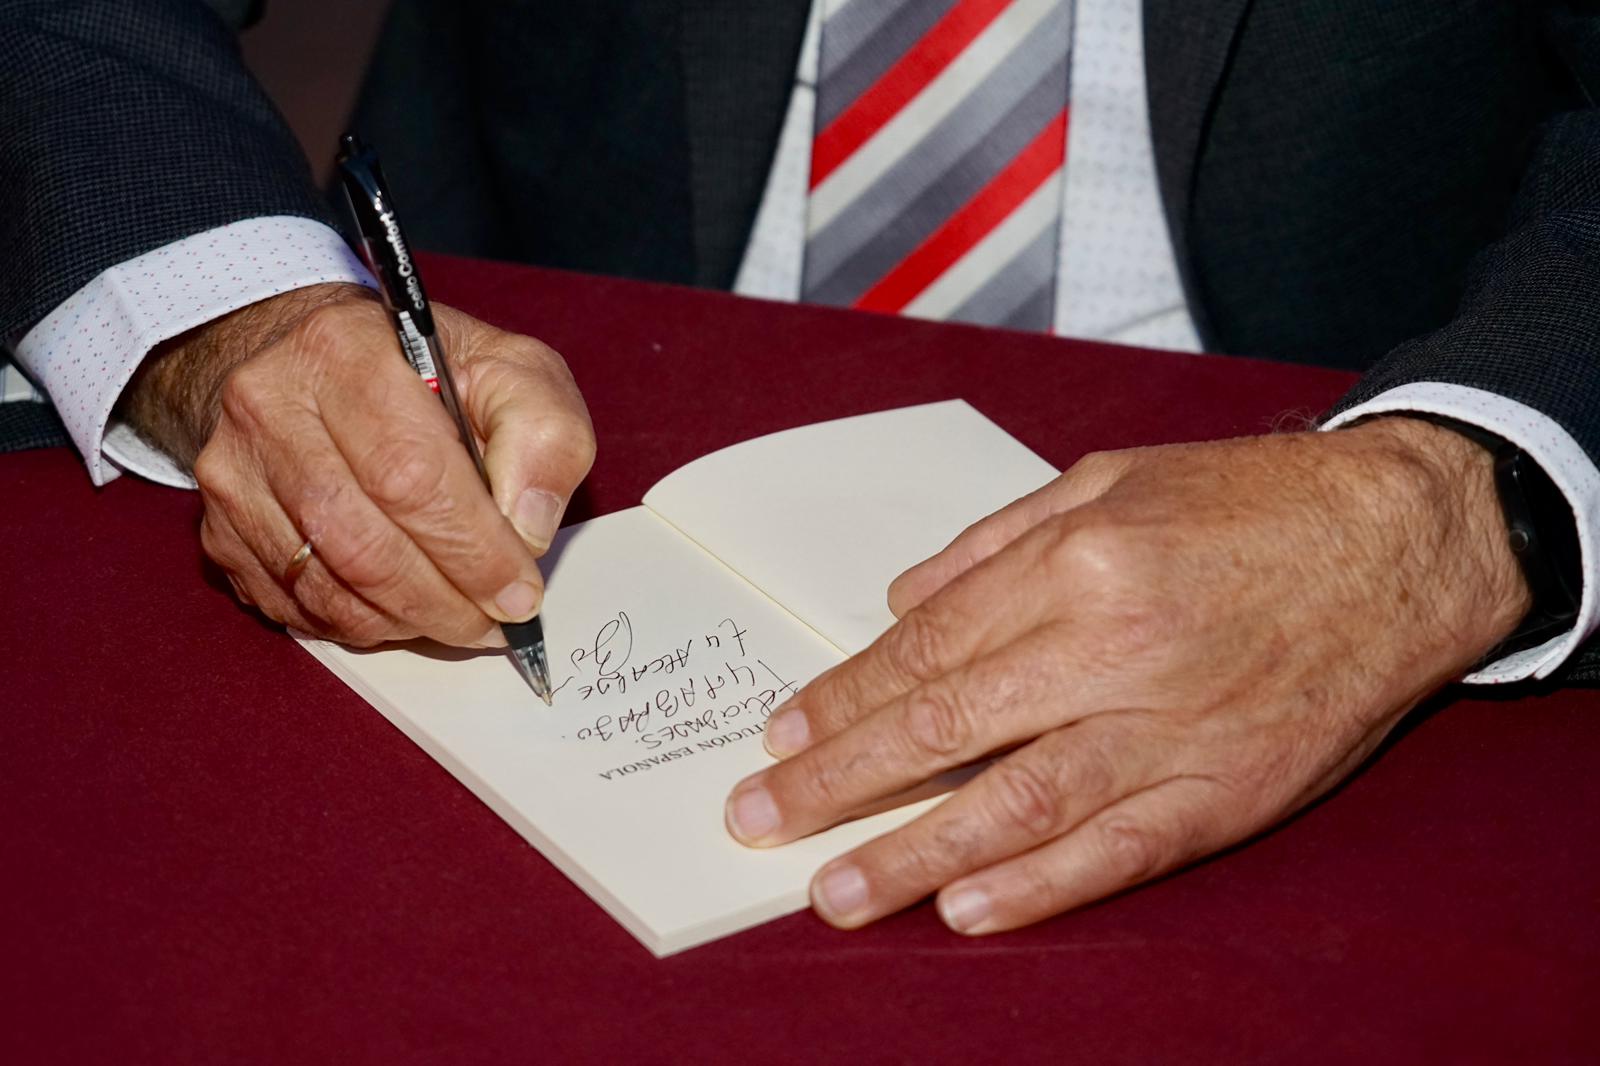 cello Comfort
TUCIÓN ESPAÑOLA
Felicidades.
Un ABRAZO.
tu Alcalde